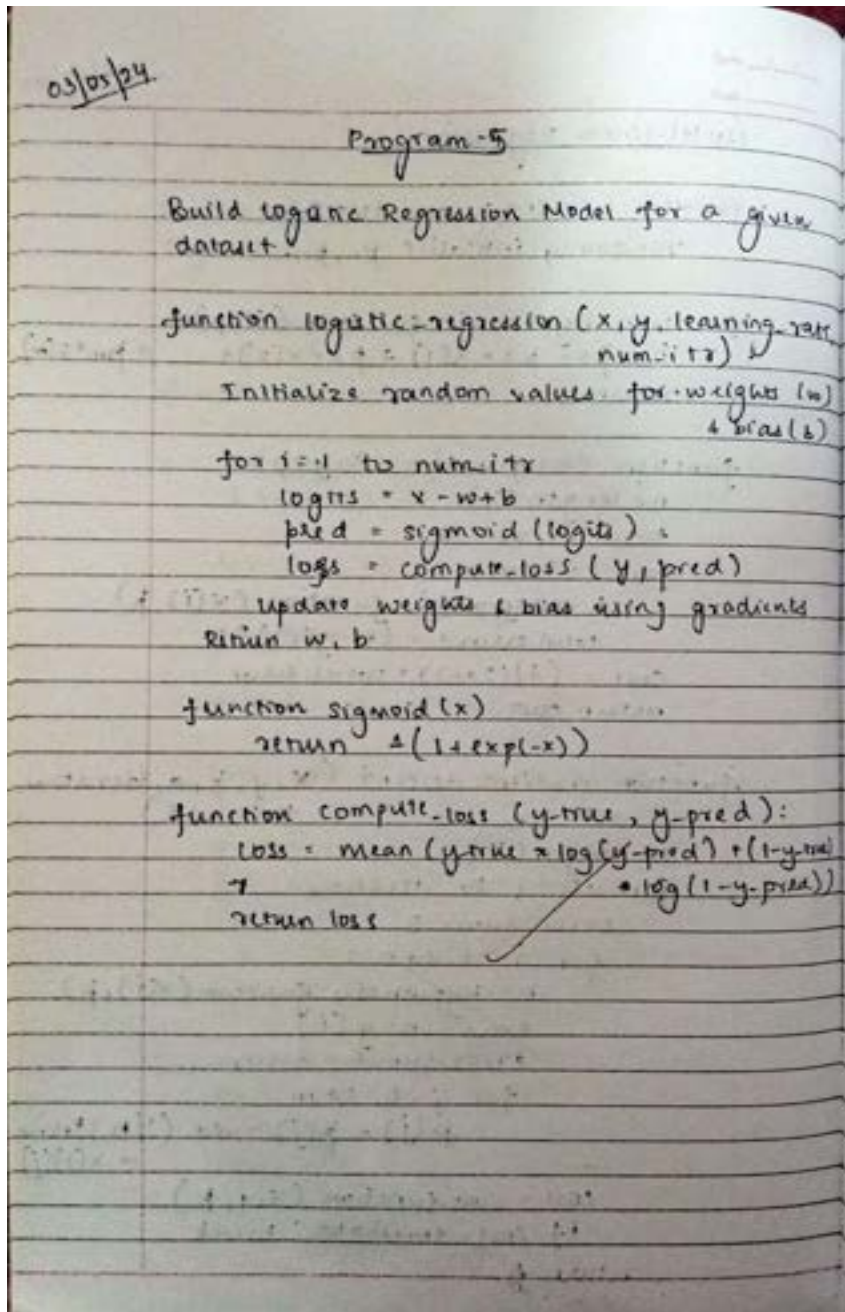 03/05/24
Program-5
Build Logistic Regression Model for a given
dataset.
function logistic-regression (x, y, learning_rate
num_itr)
Initialize random values for weights (w)
& bias (b)
for i=1 to num_itr
logits = x - w+b
pred = sigmoid (logits)
loss = compute_loss (y, pred)
update weights & bias using gradients
Return w, b
function sigmoid (x)
return 1(1+exp(-x))
function compute_loss (y-true, y-pred):
loss = mean (y-true * log(y-pred) + (1-y-true)
* log (1-y-pred))
return loss